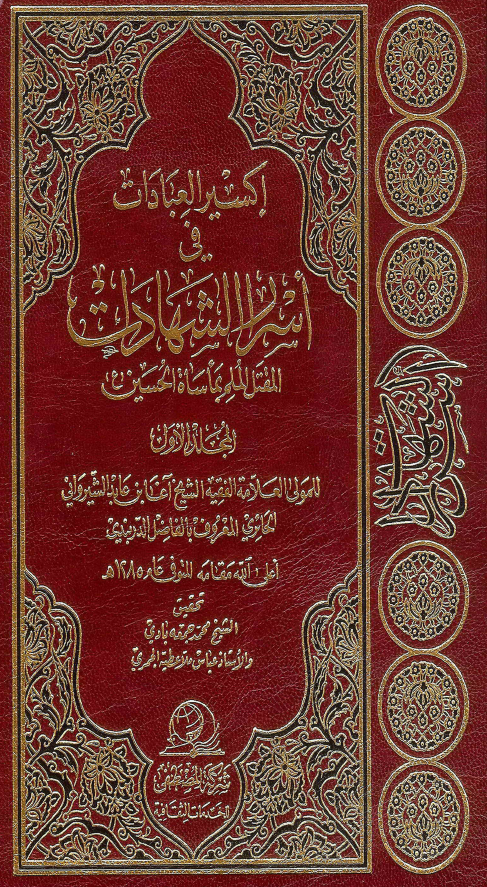 إكسير العبادات
في
أسرار الشهادات
المقتل الملم بمأساة الحسين (ع)
المجلد الأول
للمولى العلامة الفقيه الشيخ آغا بن عابد الشيرواني
الحائري المعروف بالفاضل الدربندي
أعلى الله مقامه المتوفى عام ١٢٨٥هـ
تحقيق
الشيخ محمد جمعه بادي
والأستاذ عباس ملا عطية الجمري
شركة المصطفى
للخدمات الثقافية